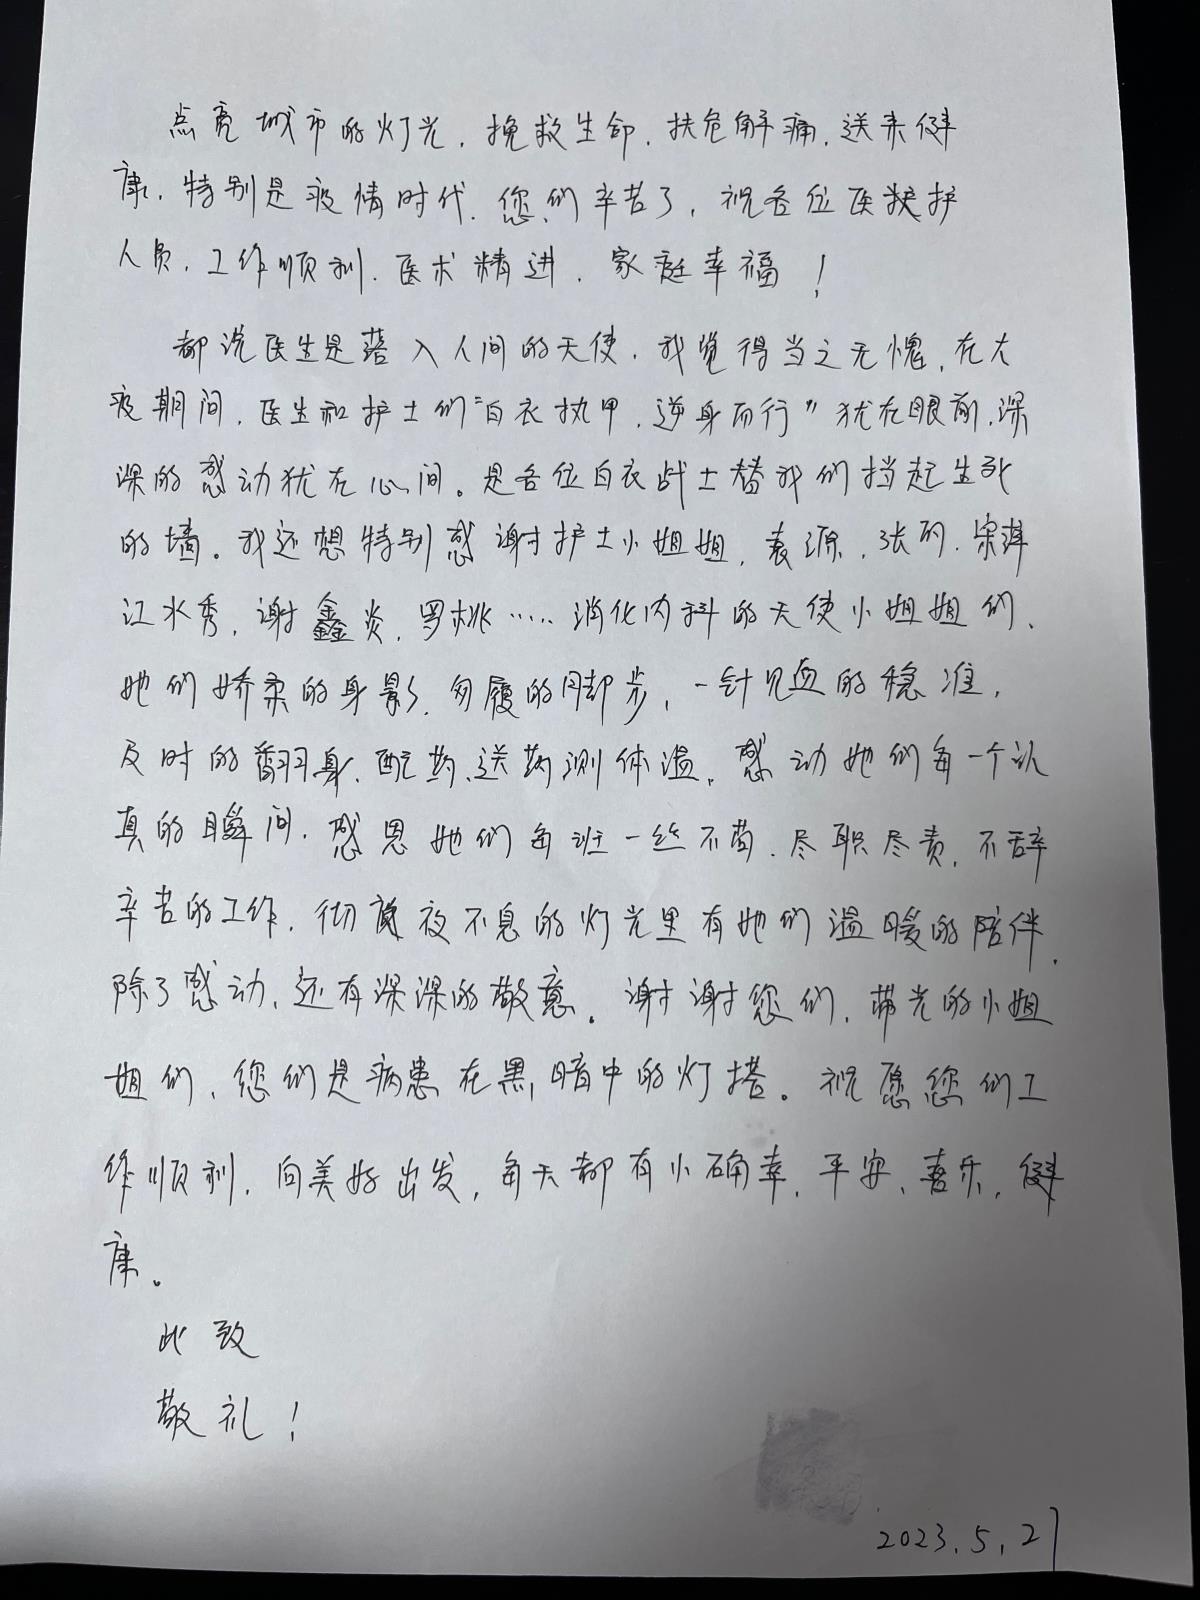 点亮城市的灯光，挽救生命，扶危解痛，送来健
康，特别是疫情时代，您们辛苦了，祝各位医护
人员，工作顺利，医术精进，家庭幸福！
都说医生是落入人间的天使，我觉得当之无愧，在大
疫期间，医生和护士们“白衣执甲，逆身而行”犹在眼前，深
深的感动犹在心间。是各位白衣战士替我们挡起生死
的墙。我还想特别感谢护士小姐姐，袁源，张玥，宋萍
江水秀，谢鑫炎，罗桃……消化内科的天使小姐姐们，
她们娇柔的身影，匆履的脚步，一针见血的稳准，
及时的翻身、配药、送药测体温，感动她们每一个认
真的瞬间，感恩她们每班一丝不苟，尽职尽责，不辞
辛苦的工作，彻夜不息的灯光里有她们温暖的陪伴，
除了感动，还有深深的敬意。谢谢您们，带光的小姐
姐们，您们是病患在黑暗中的灯塔。祝愿您们工
作顺利，向美好出发，每天都有小确幸，平安，喜乐，健
康。
此致
敬礼！
2023.5.27